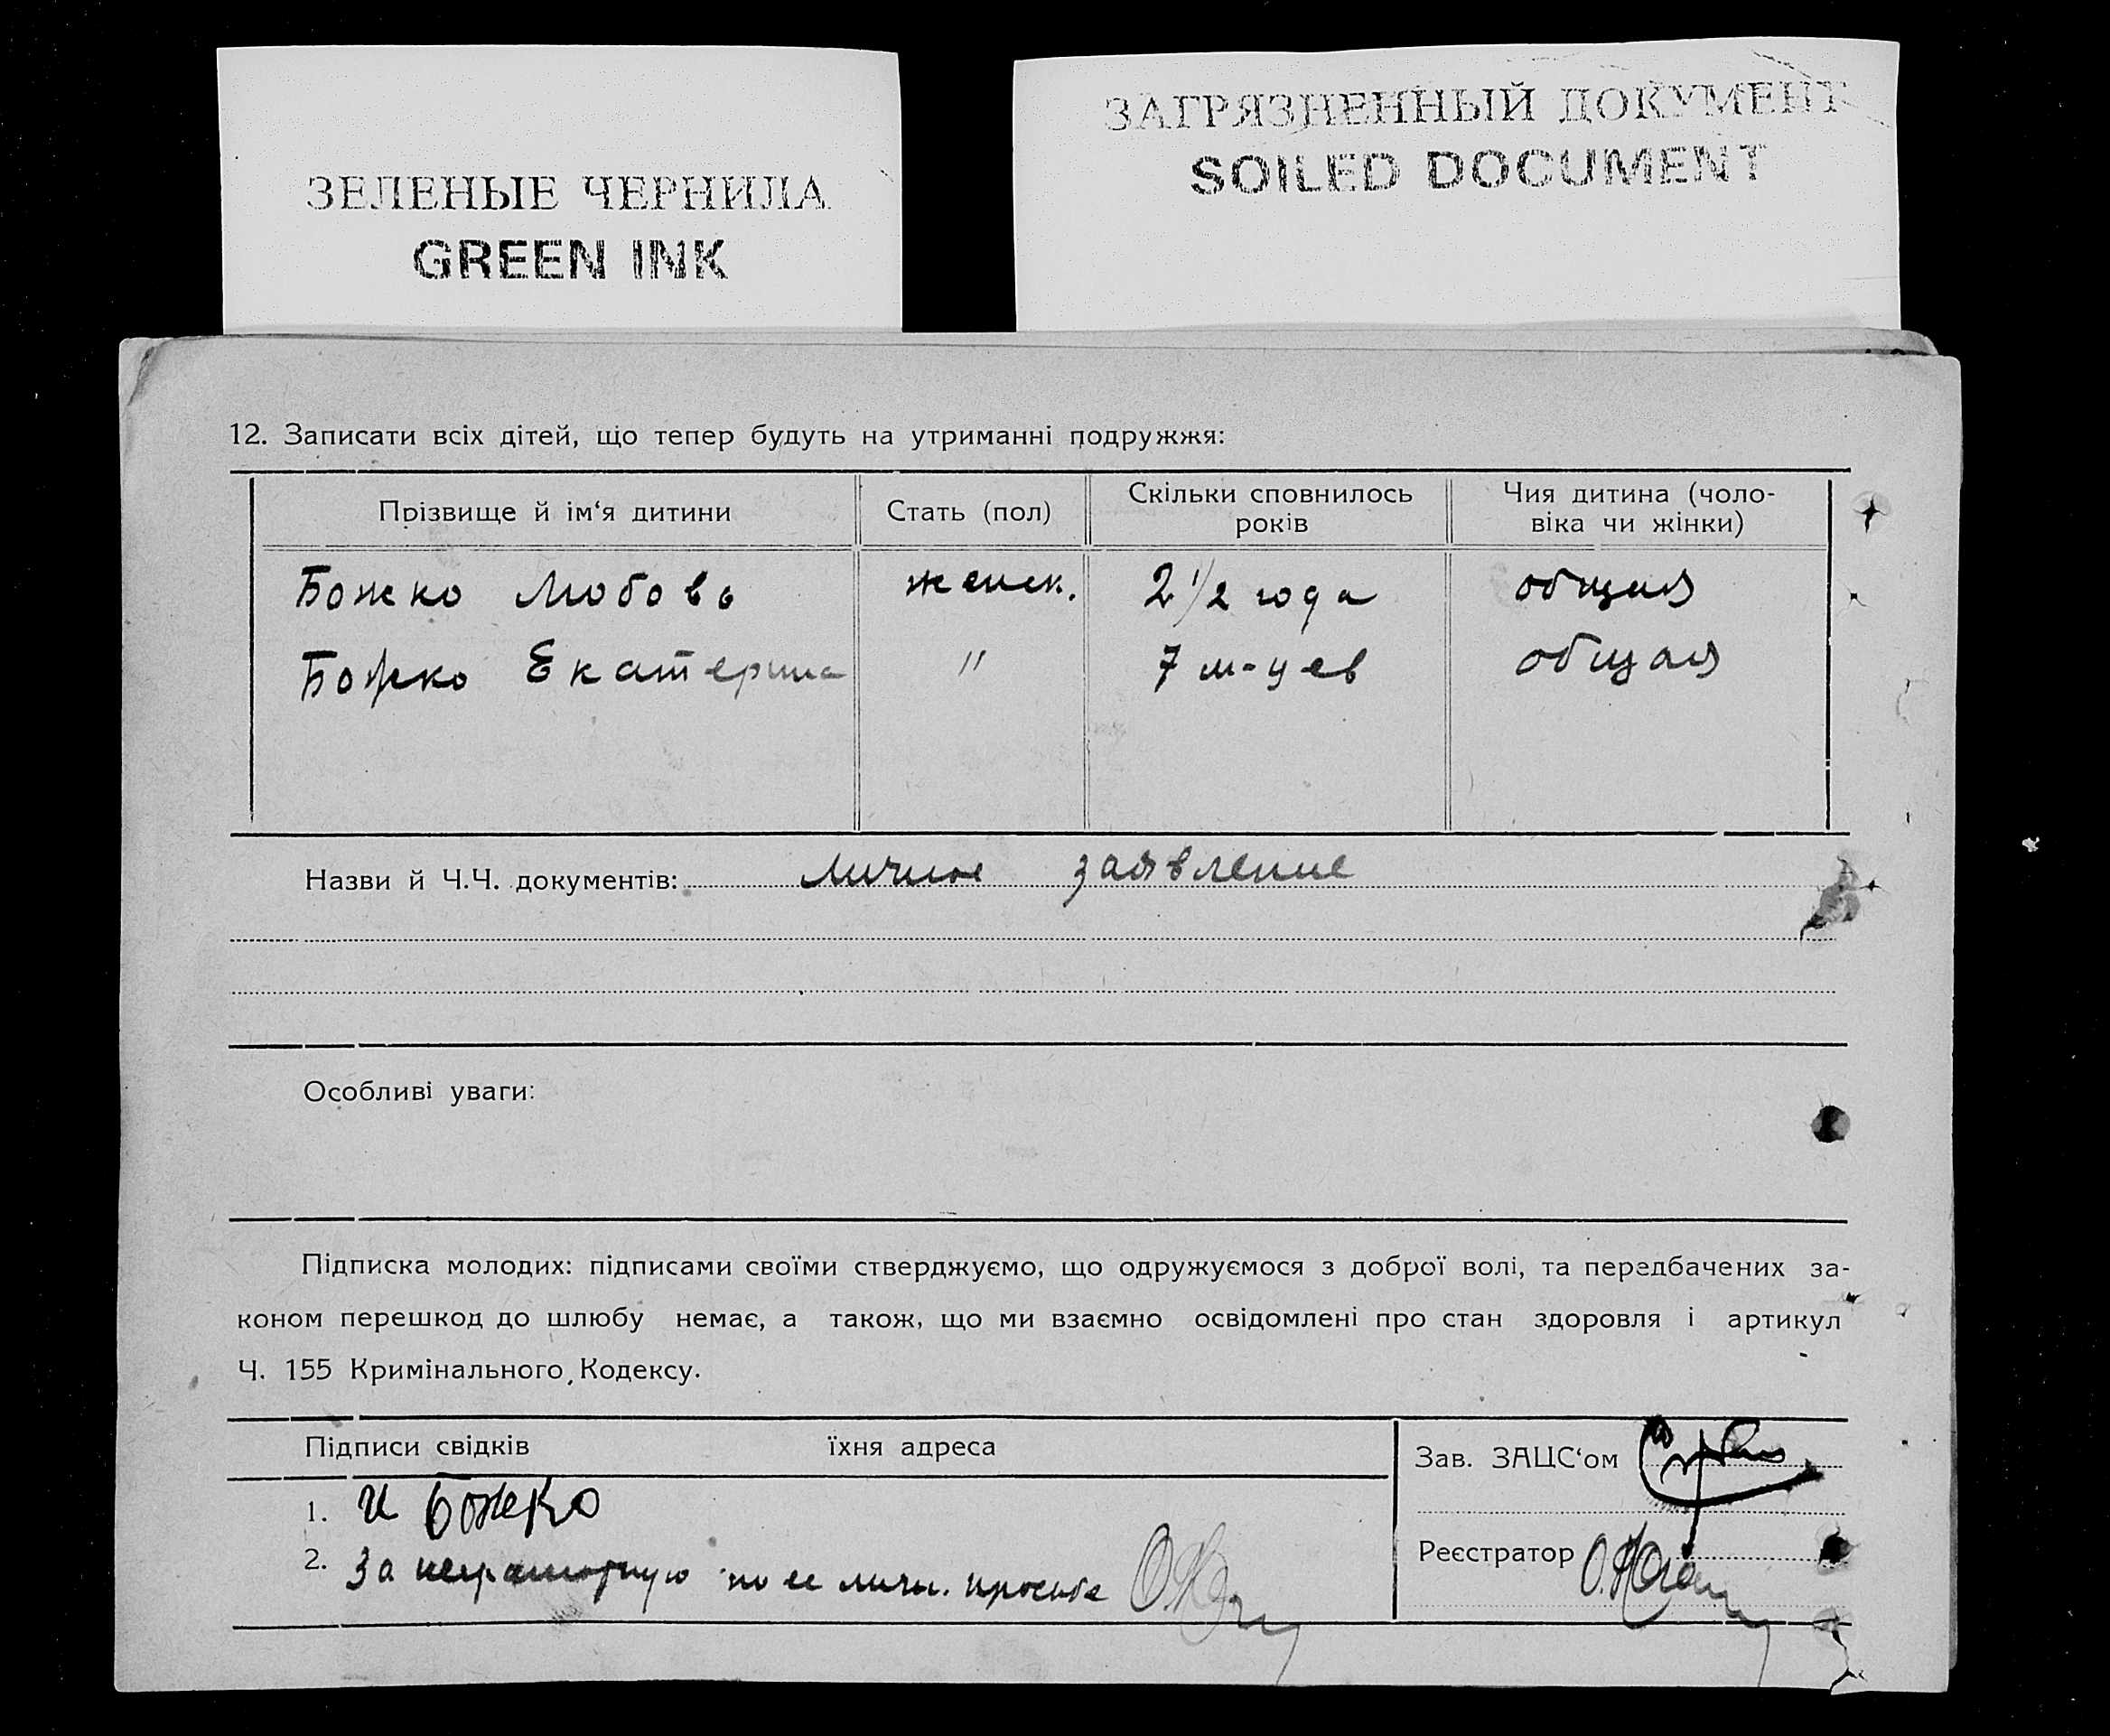 ЗЕЛЕНЫЕ ЧЕРНИЛА
GREEN INK
ЗАГРЯЗНЕННЫЙ ДОКУМЕНТ
SOILED DOCUMENT
12. Записати всіх дітей, що тепер будуть на утриманні подружжя:
Прізвище й ім‘я дитини Стать (пол) Скільки сповнилось років Чия дитина (чоловіка чи жінки)
Божко Любовь женск. 2 1/2 года общая
Божко Екатерина " 7 м-цев общая
Назви й Ч.Ч. документів: личное заявление
Особливі уваги:
Підписка молодих: підписами своїми стверджуємо, що одружуємося з доброї волі, та передбачених за-
коном перешкод до шлюбу немає, а також, що ми взаємно освідомлені про стан здоровля і артикул
Ч. 155 Кримінального Кодексу.
Підписи свідків їхня адреса
Зав. ЗАЦС‘ом
1. И Божко
Реєстратор
2. За неграмотную по ее личн. просьбе